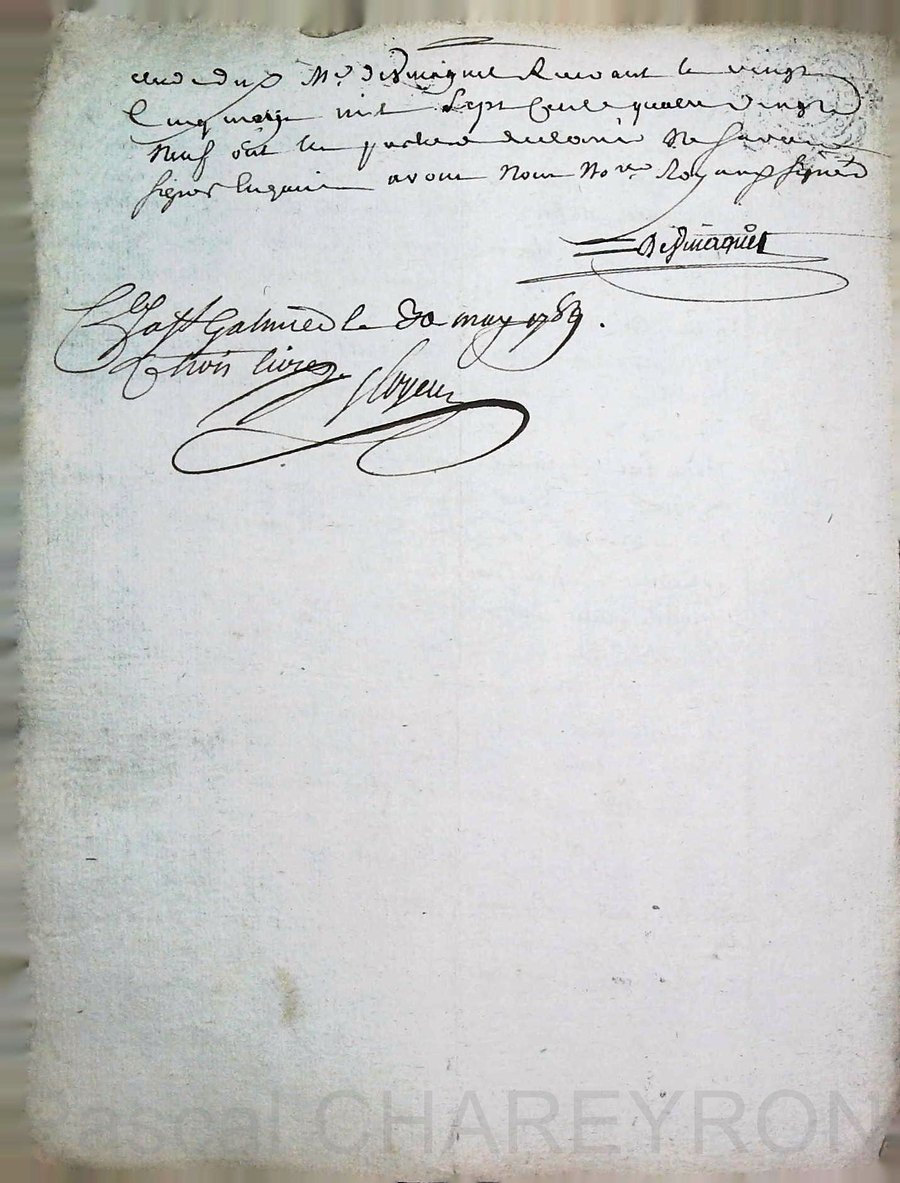 Me Desmaquet Recevant le vingt
Cinq may mil Sept Cent quatre vingt
Neuf ont les parties declaré Ne savoir
signer Enquis avons Nous Nore Royal signé
Desmaquet
a St Galmier le 30 may 1789.
trois livres
Pascal CHAREYRON